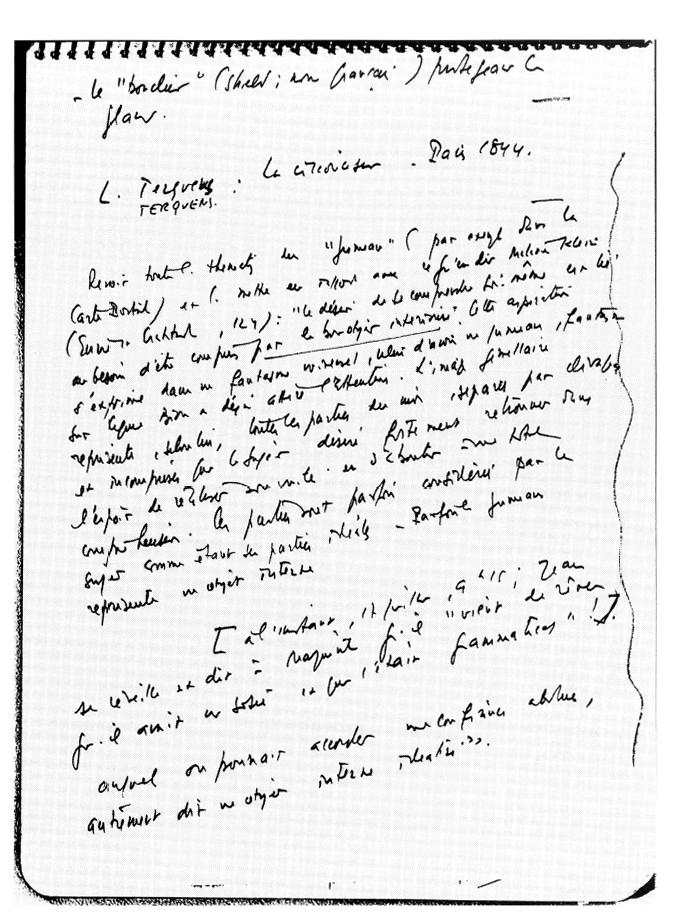 - le "bouclier" (Shield ; non français) protégeant le
gland.
La circoncision . Paris 1844.
L. Terquem :
TERQUEM.
Revoir toute l. thématique du "jumeau" ( par exemple dans la
Carte Postale) et l. mettre en rapport avec ce qu'en dit Melanie Klein
(Envie et Gratitude, 124) : "le désir de se comprendre soi-même est lié
au besoin d'être compris par le bon objet intériorisé. Cette aspiration
s'exprime dans un fantasme universel, celui d'avoir un jumeau, fantasme
sur lequel Bion a déjà attiré l'attention. L'image gémellaire
représente, selon lui, toutes les parties du moi, séparées par clivage
et incomprises que le sujet désire fortement retrouver dans
l'espoir de réaliser son unité et d'aboutir à une totale
compréhension. Ces parties sont parfois considérées par le
sujet comme étant ses parties idéales - Parfois le jumeau
représente un objet interne
[ à l'instant, 17 juillet, 9h15, Jean
se réveille et dit à Marguerite qu'il "vient de rêver
qu'il avait un sosie et que c'était grammatical" !].
auquel on pourrait accorder une confiance absolue,
autrement dit un objet interne idéalisé".